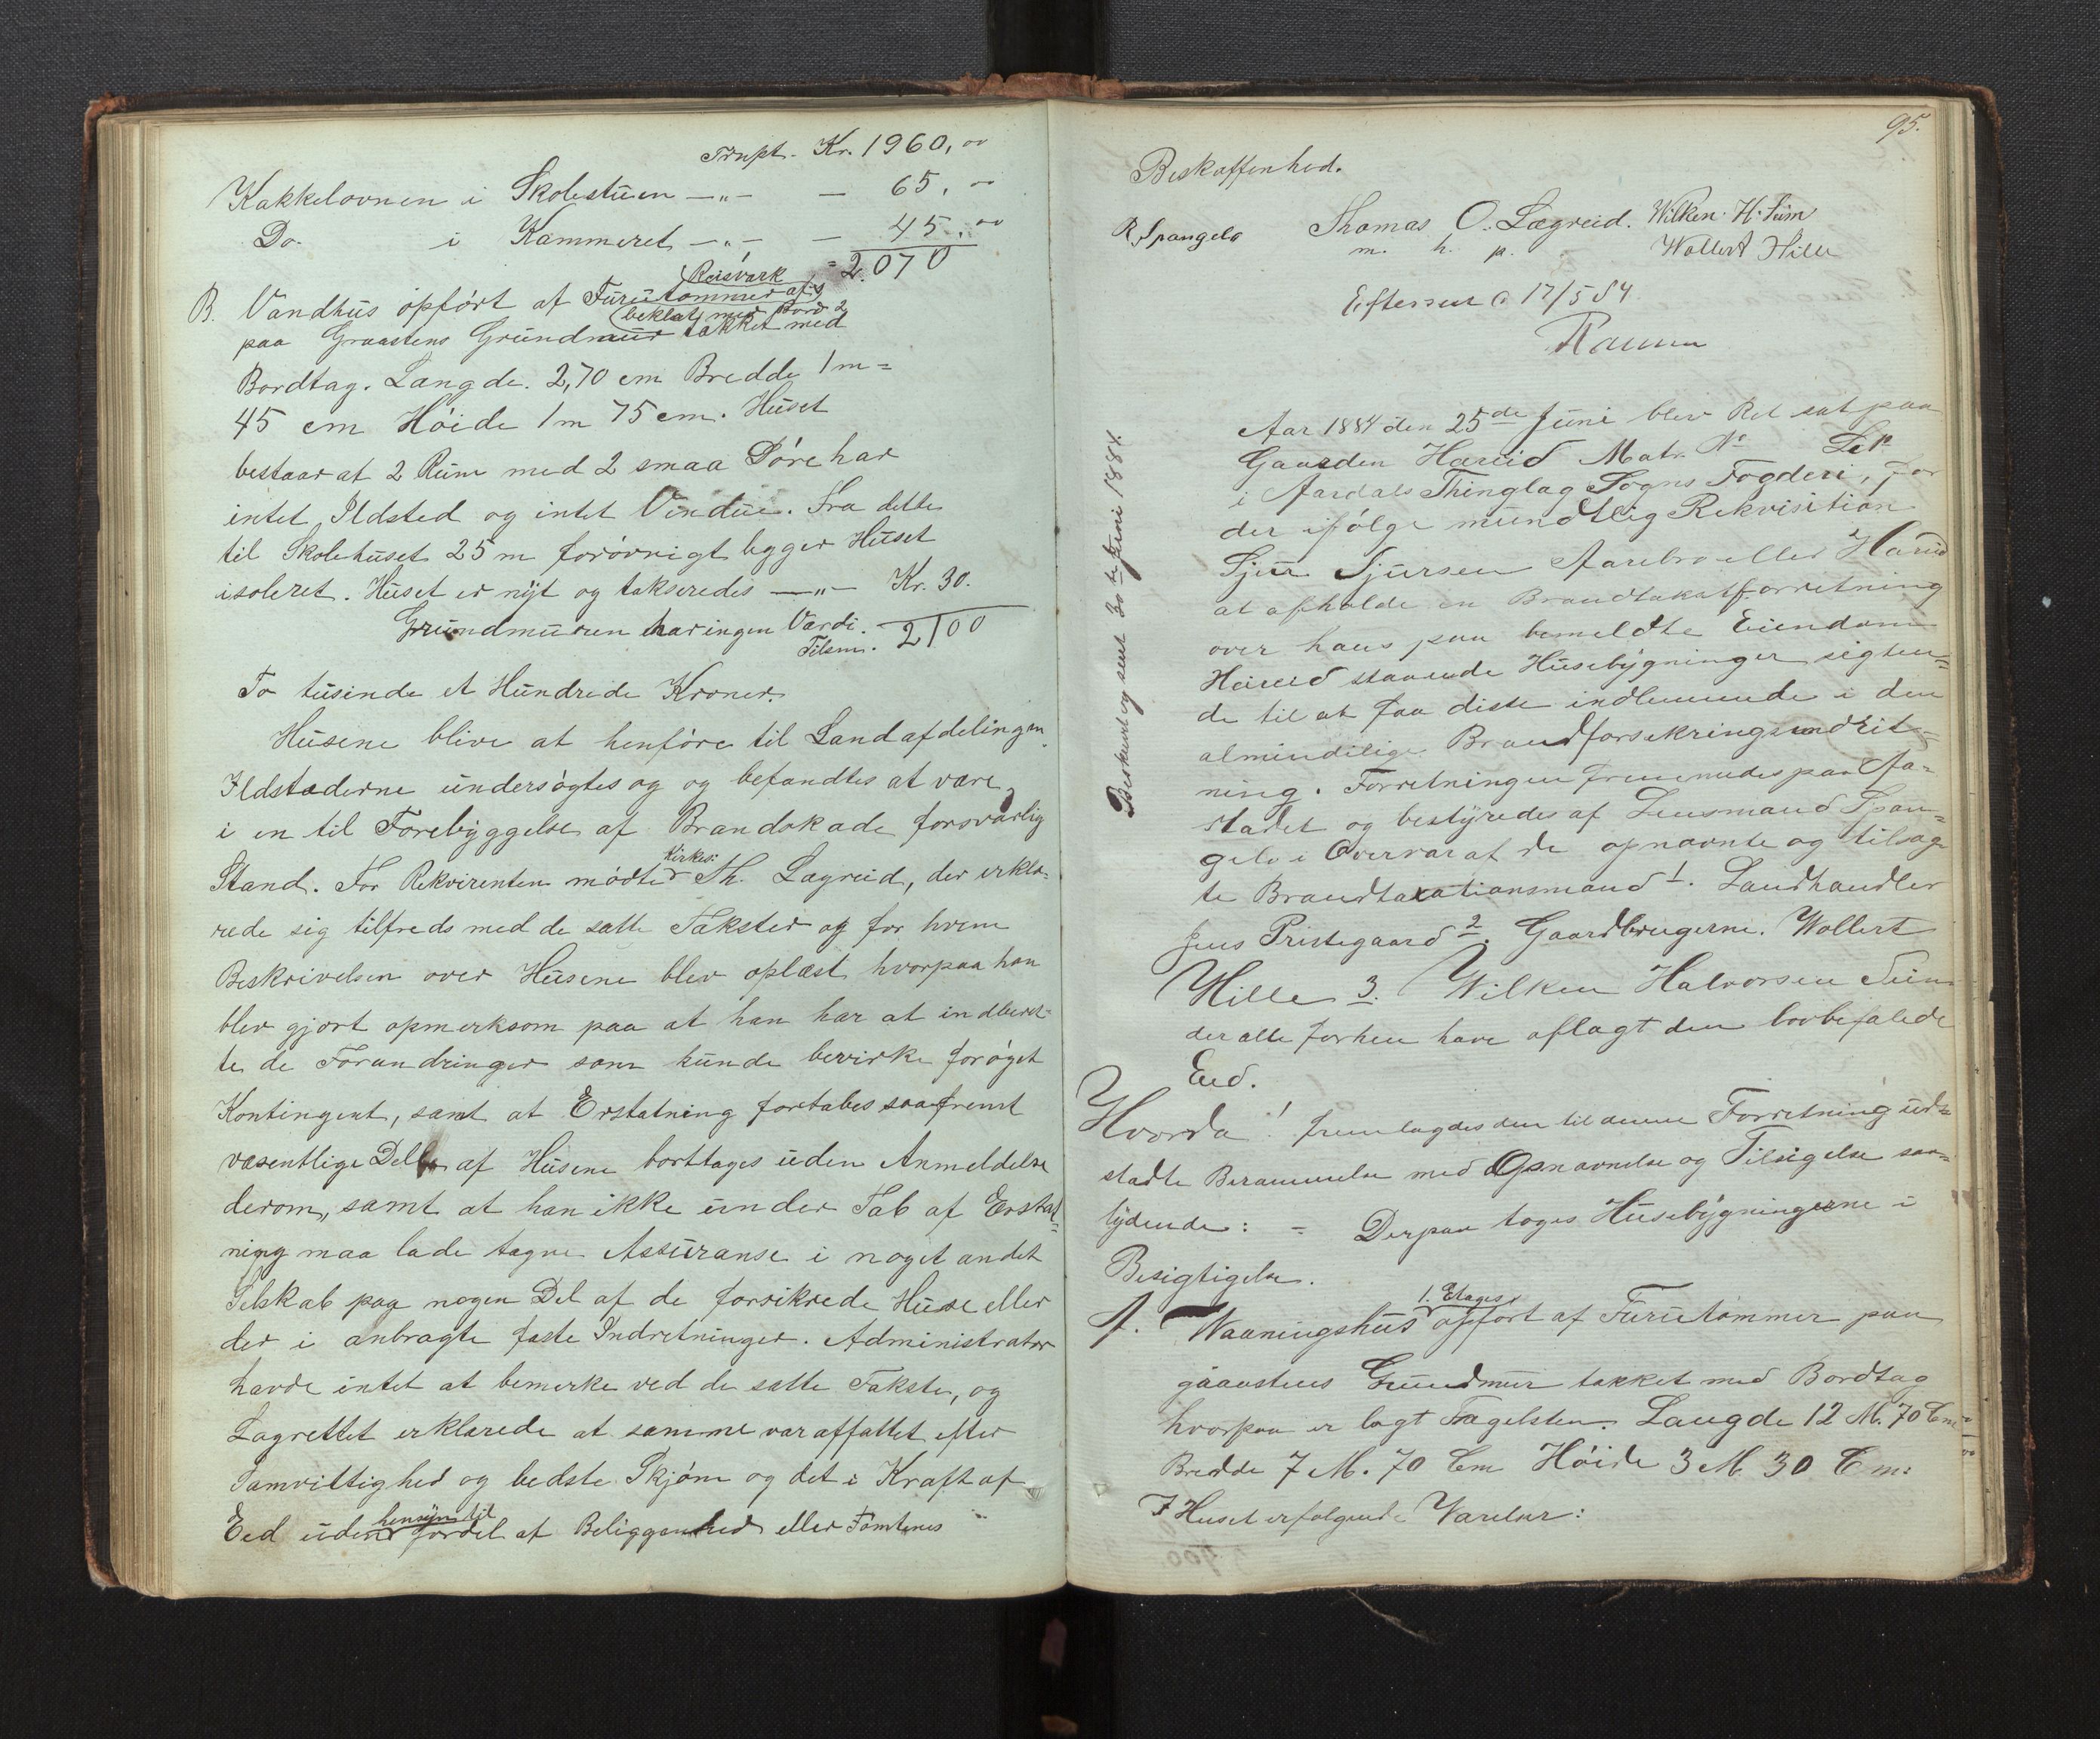 Trnspt. Kr. 1960,00
Kakkelovnen i Skolestuen —„— — 65,00
Do. i Kammeret —„— — 45,00
= 2.070
B. Vandhus opført af Reisværk Furutømmer
beklæt med Bord
paa Graastens Grundmur takket med
Bordtag. Længde. 2,70 cm Bredde 1 m =
45 cm Høide 1 m 75 cm. Huset
bestaar at 2 Rum med 2 smaa Døre har
intet Ildsted og intet Vindue. Fra dette
til Skolehuset 25 m forøvrigt ligger Huset
isoleret. Huset er nyt og takseredes —„— Kr. 30.
Grundmuren har ingen Værdi.
Tilsm. 2100
To tusinde et Hundrede Kroner.
Husene blive at henføre til Landafdelingen.
Ildstæderne undersøgtes og og befandtes at være
i en til Forebyggelse af Brandskade forsvarlig
Stand. For Rekvirenten mødte Kirkes: Th. Lægreid, der erklæ-
rede sig tilfreds med de satte Takster og for hvem
Beskrivelsen over Husene blev oplæst hvorpaa han
blev gjort opmerksom paa at han har at indberet-
te de Forandringer som kunde bevirke forøget
Kontingent, samt at Erstatning fortabes saafremt
væsentlige Dele af Husene borttages uden Anmeldelse
derom, samt at han ikke under Tab af Erstat=
ning maa lade tagne Assuranse i noget andet
Selskab paa nogen Del af de forsikrede Huse eller
der i anbragte faste Indretninger. Administrator
havde intet at bemerke ved de satte Takster, og
Lagrettet erklærede at samme var affattet efter
Samvittighed og bedste Skjøn og det i Kraft af
Eed uden hensyn til fordel af Beliggenhed eller Tomtenes
95.
Beskaffenhed.
R. Spangelo Thomas O. Lægreid. Wilken H. Sum
m. h. p. Wollert Hille
Efterseet 17/5 84
Bekræft og sent 30te Juni 1884.
Aar 1884 den 25de Juni blev Ret sat paa
Gaarden Hæreid Matr. No Lb.
i Aardals Thinglag Sogns Fogderi, for
der ifølge mundtlig Rekvisition
Sjur Sjursen Aarebro eller Hæreid
at afholde en Brandtakstforretning
over hans paa bemeldte Eiendom
Hæreid staaende Husebygninger sigten=
de til at faa disse indlemmede i den
almindelige Brandforsekringsindret=
ning. Forretningen fremmedes paa Aa=
stadet og bestyredes af Lensmand Span=
gelo i Overvær af de opnævnte og tilsag
te Brandtaxationsmænd 1. Landhandler
Jens Pristegaard 2. Gaardbrugerne. Wollert
Hille 3. Wilken Halvorsen Sum
der alle forhen have aflagt den lovbefalede
Eed.
Hvorda! fremlagdes den til denne Forretning ud=
stædte Berammelse med Opnævnelse og Tilsigelse saa=
lydende: = Derpaa toges Husebygningerne i
Besigtigelse.
A. Waaningshus 1. Etages opført af Furutømmer paa
gaastens Grundmur takket med Bordtag
hvorpaa er lagt Tagelsten. Længde 12 M. 70 Cm
Bredde 7 M. 70 Cm Høide 3 M 30 Cm:
I Huset er følgende Værelser: